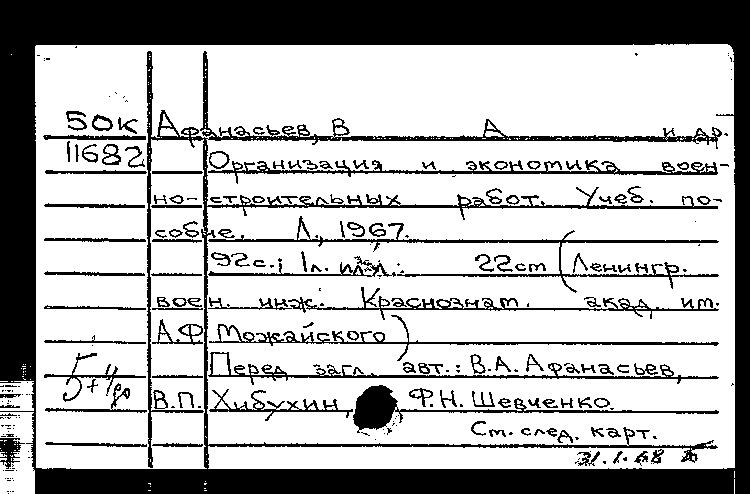 50к Афанасьев, В А и др.
11682 Организация и экономика воен-
но-строительных работ. Учеб. по-
собие. Л., 1967.
92с.; 1л. илл.: 22cm (Ленингр.
воен. инж. Краснознам. акад. им.
А.Ф. Можайского)
Перед загл. авт.: В.А. Афанасьев,
В.П. Хибухин, Ф.Н. Шевченко.
Ст. след. карт.
31.1.68